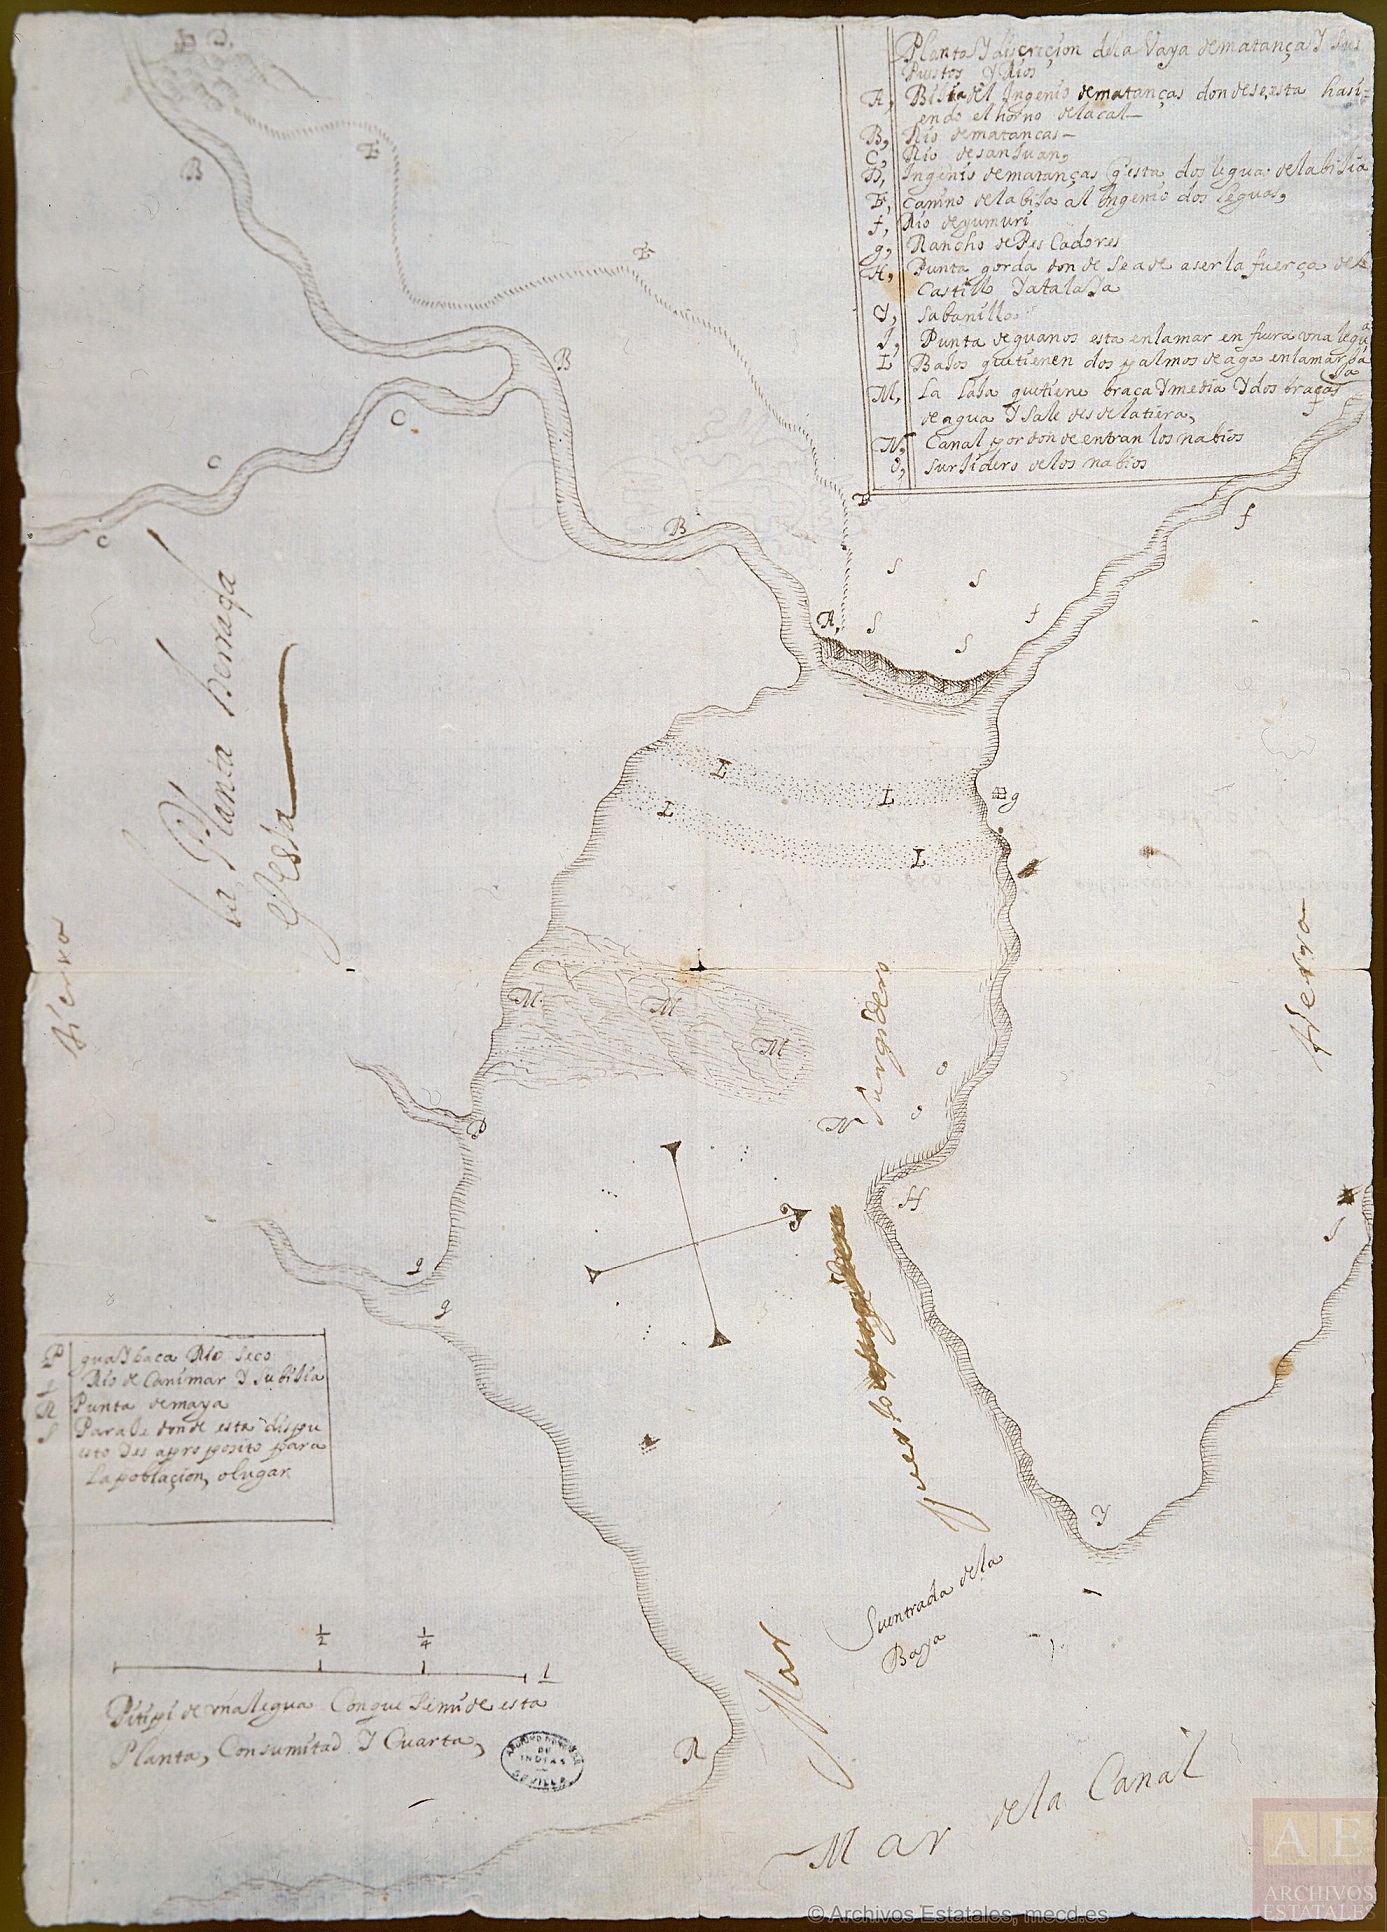 Planta Y discricion dela Vaya dematança Y sus
Puestos Y Rios
A, Bija del Ingenio dematanças dondesesta hasi=
endo el horno delacal—
B, Rio dematancas—
C, Rio desanJuan,
D, Ingenio dematanças questa dos leguas delabijia
E, Camino delabija al Ingenio dos leguas,
f, Rio deyumuri
g, Rancho dePes Cadores
H, Punta gorda donde seade aserlafuerça del
Castillo Yatalaya
Y, Sabanilla
J, Punta deguanos esta enlamar enfuera una legua
L Bajos quetienen dos palmos deaga enlamar ba
Ja
M, La laja quetiene braça Ymedia Ydos braças
deagua Y sale desdelatiera,
N, Canal pordondeentran losnabios
O, Surjidero delos nabios
D
B
E
E
B
C
C
C
B
E
f
f
f
S
S
S
S
A,
La Planta herrada
esesta
L
L
L
L
g
hierro
hierro
M
M
M
Surgidero
O
O
N
P
H
J
q
q
S
P guaYbaca Rio Seco
q Rio de Canimar Y Subijia
R Punta demaya
S Paraje donde esta dispu
esto Des apro posito para
Lapoblaçion, olugar
Y
Suentrada dela
Baya
Mar
½ ¼ 1
Pitipi de unalegua Conque Semide esta
Planta, Consumitad Y Cuarta,
ARCHIVO GENERAL
DE
INDIAS
SEVILLA
R
Mar dela Canal
AE
ARCHIVOS
ESTATALES
© Archivos Estatales, mecd.es